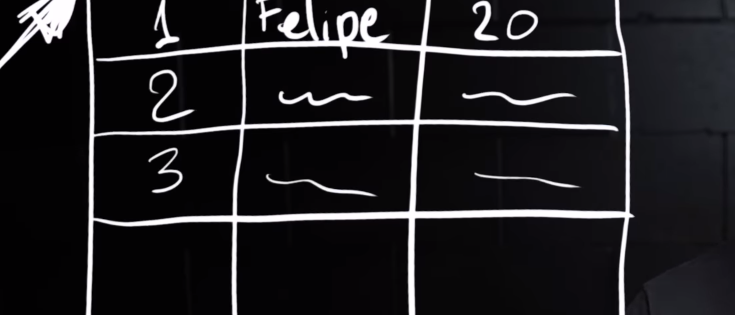 1 Felipe 20
2
3